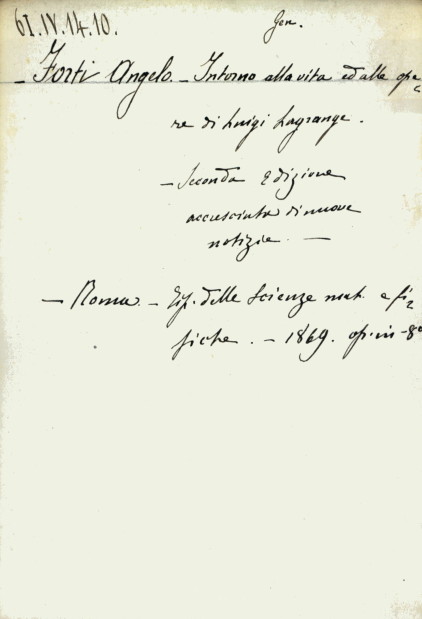 61.IV.14.10.
Gen.
— Forti Angelo. — Intorno alla vita ed alle ope-
re di Luigi Lagrange.
— Seconda Edizione
accresciuta di nuove
notizie. —
— Roma. — Tip. delle Scienze mat. e fi-
siche. — 1869. op. in-8°